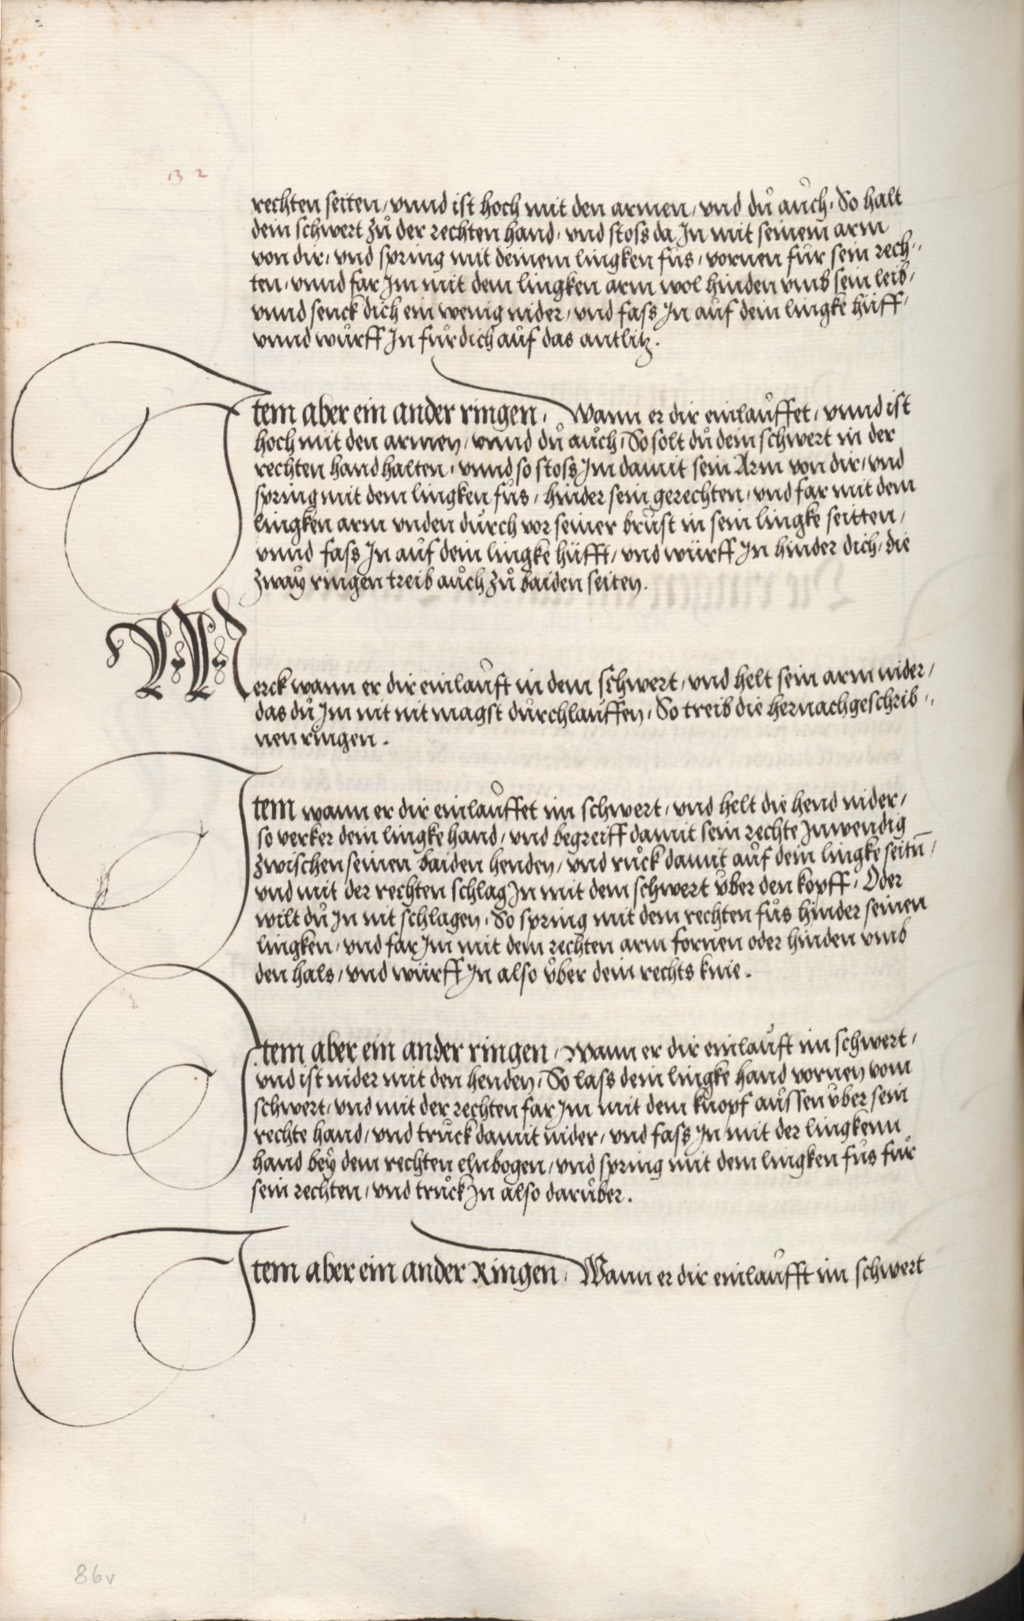 132
rechten seiten / vnnd ist hoch mit den armen / vnd dů aůch. So halt
dein schwert zů der rechten hand / vnd stoss da Jn mit seinem arm
von dir / vnd spring mit deinem lingken fůs / vornen fůr sein rech-
ten / vnnd far Jm mit dem lingken arm wol hinden vmb sein leib /
vnnd senck dich ein wenig nider / vnd fass Jn aůf dein lingke hüff /
vnnd wůrff Jn fůr dich aůf das antlitz.
Jtem aber ein ander ringen. Wann er dir einlaůffet / vnnd ist
hoch mit den armen / vnnd dů aůch / So solt dů dein schwert in der
rechten hand halten / vnnd so stoss Jm damit sein Arm von dir / vnd
spring mit dem lingken fůs / hinder sein gerechten / vnd far mit dem
lingken arm vnden důrch vor seiner brůst in sein lingke seitten /
vnnd fass Jn aůf dein lingke hüfft / vnd würff Jn hinder dich / die
zwaÿ ringen treib aůch zů baiden seiten.
Merck wann er dir einlaůft in dem schwert / vnd helt sein arm nider /
das dů Jm nit nit magst důrchlaůffen / So treib die hernachgeschrib-
nen ringen.
Jtem wann er dir einlaůffet im schwert / vnd helt die hend nider /
so verker dein lingke hand / vnd begreiff damit sein rechte Jnwendig
zwischen seinen baiden henden / vnd růck damit aůf dein lingke seitñ /
vnd mit der rechten schlag Jn mit dem schwert ůber den kopff / Oder
wilt dů Jn nit schlagen / So spring mit dem rechten fůs hinder seinen
lingken / vnd far Jm mit dem rechten arm fornen oder hinden vmb
den hals / vnd würff Jn also ůber dein rechts knie.
Jtem aber ein ander ringen / Wann er dir einlaůft im schwert /
vnd ist nider mit den henden / So lass dein lingke hand vornen vom
schwert / vnd mit der rechten far Jm mit dem knopf aůssen ůber sein
rechte hand / vnd trůck damit nider / vnd fass Jn mit der lingkenn
hand beÿ dem rechten elnbogen / vnd spring mit dem lingken fůs fůr
sein rechten / vnd trůck Jn also darůber.
Jtem aber ein ander Ringen / Wann er dir einlaůfft im schwert
86v